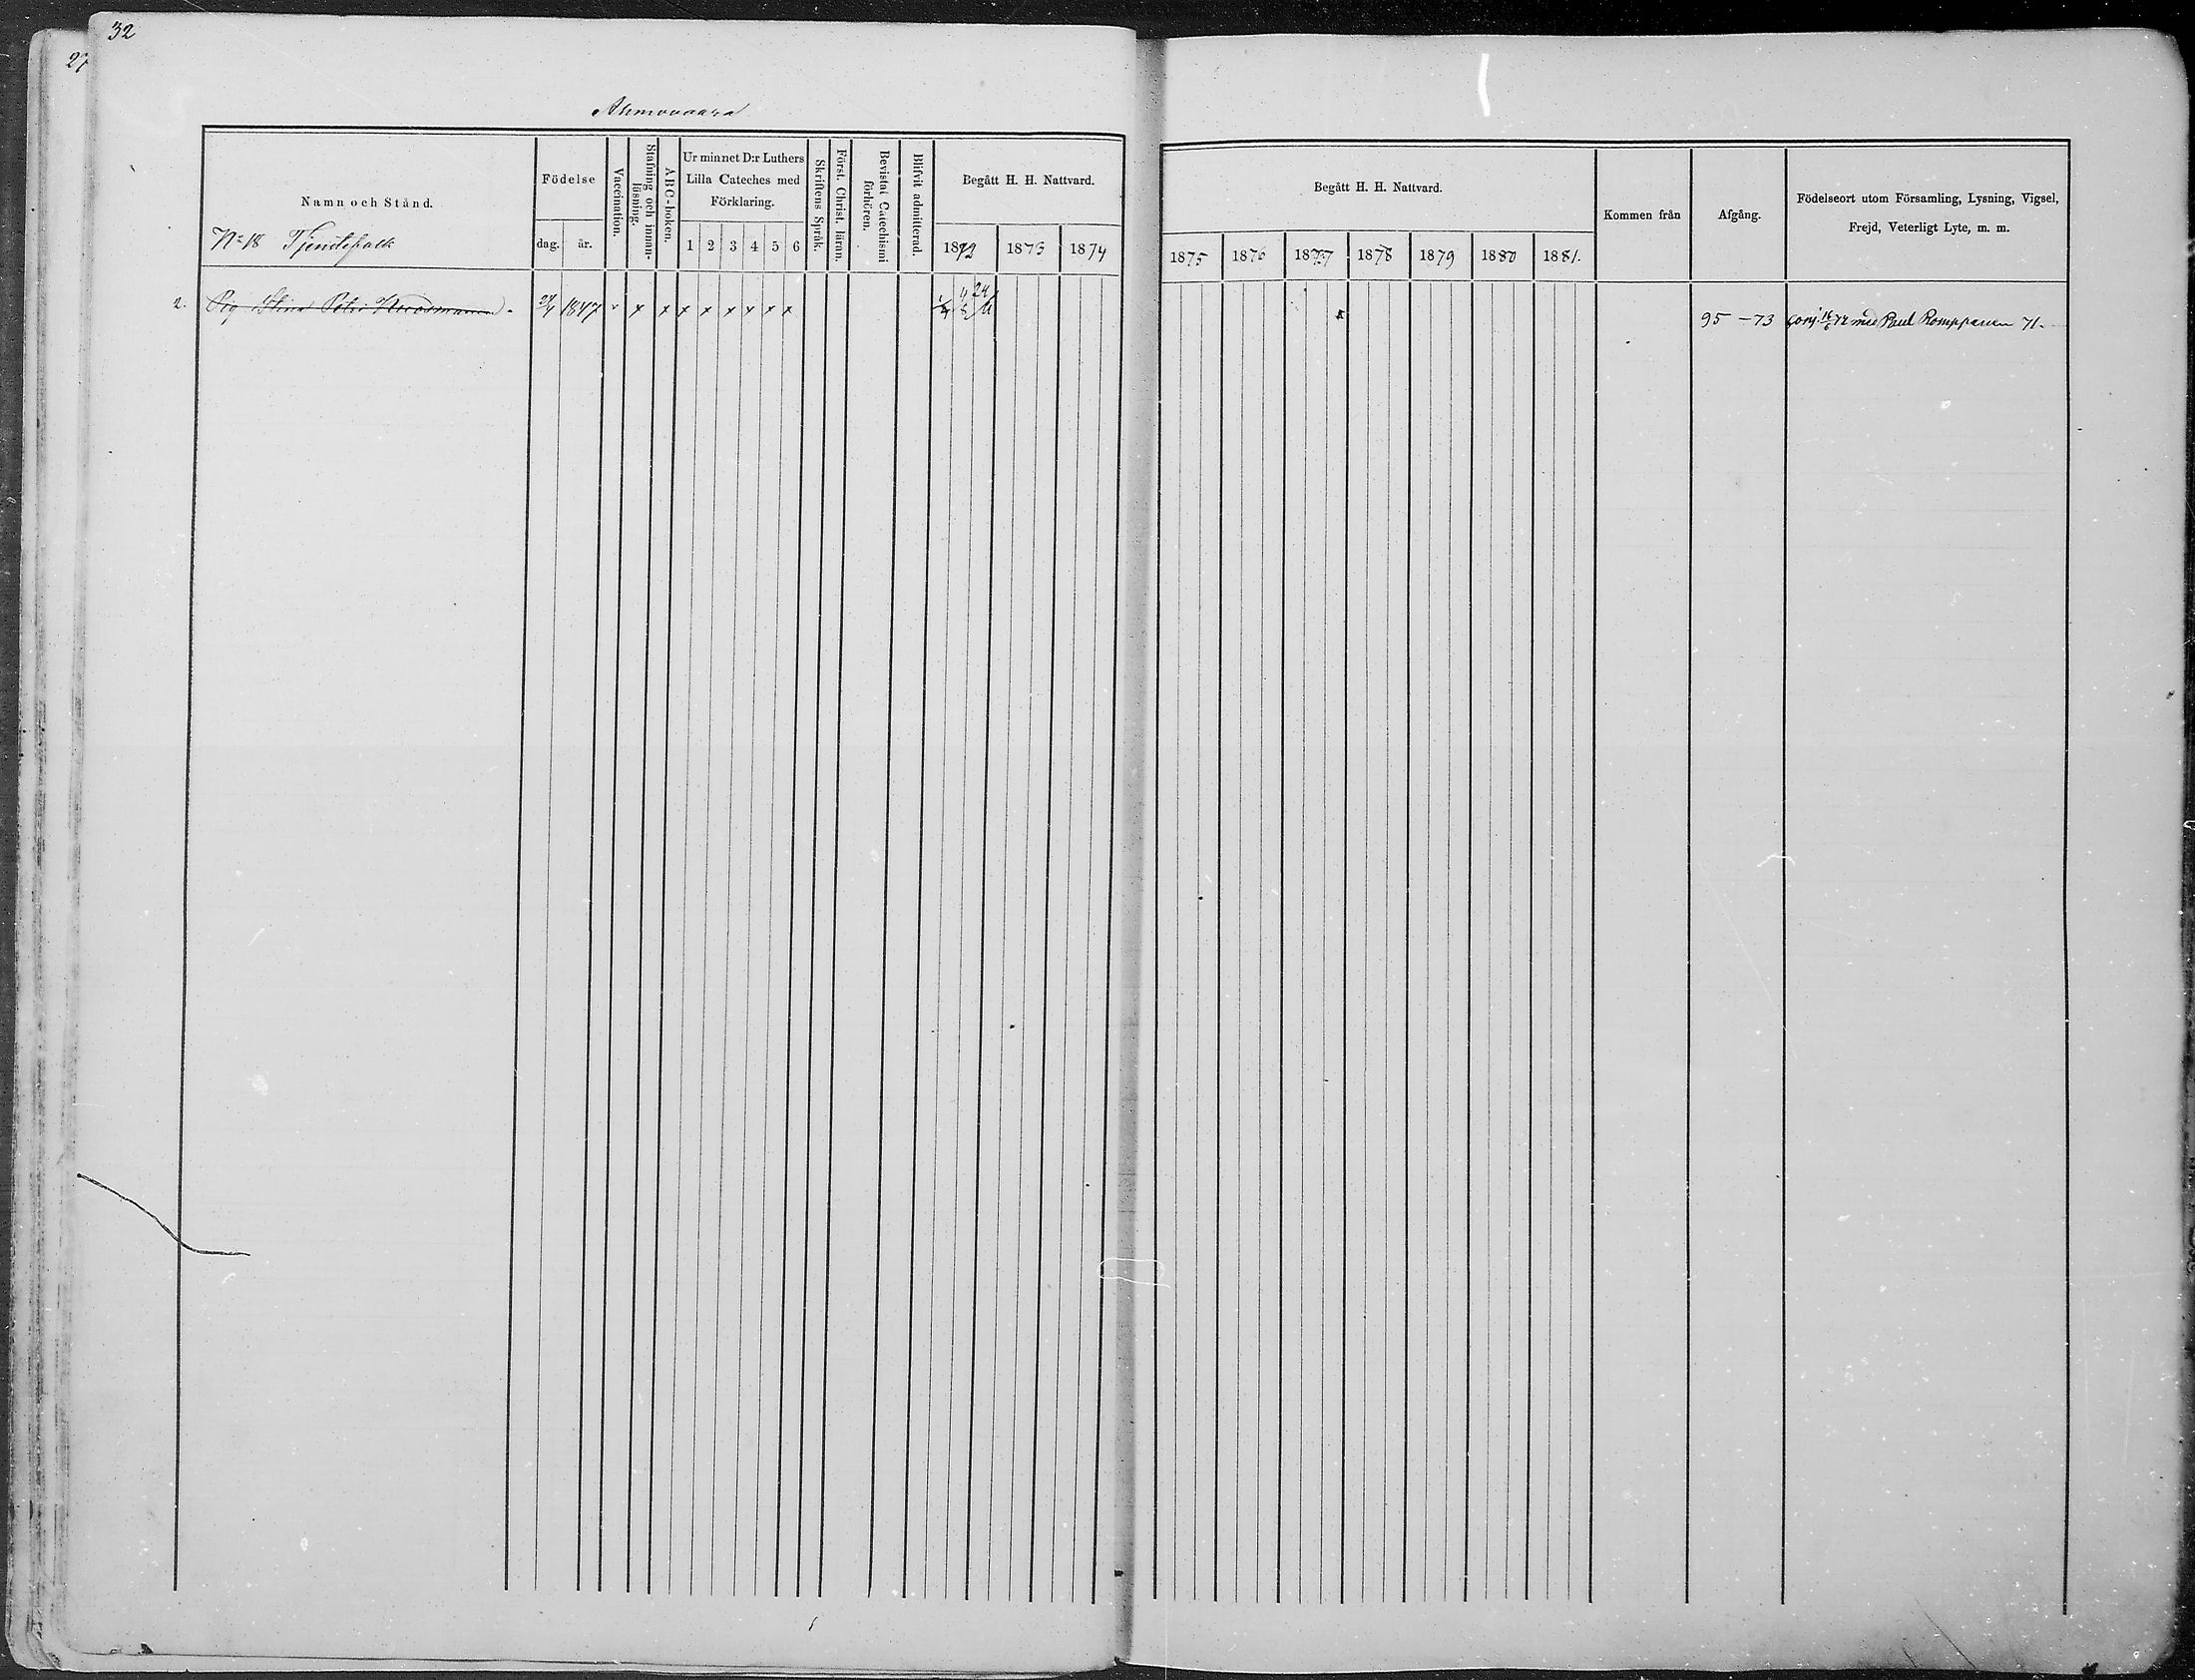 32
27
Ahmovaara
Namn och Stånd.
No 18 Tjenstefolk
Födelse
dag. år.
Vaccination.
Stafning och innanläsning.
ABC-boken.
Ur minnet D:r Luthers
Lilla Cateches med
Förklaring.
1 2 3 4 5 6
Skriftens Språk.
Först. Christ. läran.
Bevistat Catechismi förhören.
Blifvit admitterad.
Begått H. H. Nattvard.
1872 1873 1874
Begått H. H. Nattvard.
1875 1876 1877 1878 1879 1880 1881.
Kommen från
Afgång.
Födelseort utom Församling, Lysning, Vigsel,
Frejd, Veterligt Lyte, m. m.
2. Pig. Stina Petri 1847 x x x x x x x x x
95 - 73 Conj. 16/6 72 med Paul Romppanen 71.